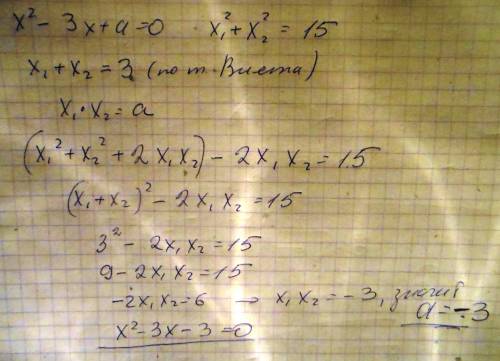 x² - 3x + a = 0    x₁² + x₂² = 15
x₁ + x₂ = 3 (по т. Виета)
x₁ • x₂ = a
(x₁² + x₂² + 2x₁x₂) - 2x₁x₂ = 15
(x₁ + x₂)² - 2x₁x₂ = 15
3² - 2x₁x₂ = 15
9 - 2x₁x₂ = 15
-2x₁x₂ = 6 → x₁x₂ = -3, значит a = -3
x² - 3x - 3 = 0